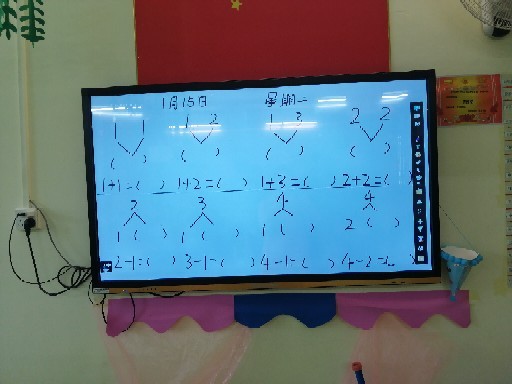 1月15日 星期一
1 1 1 2 1 3 2 2
( ) ( ) ( ) ( )
1+1=( ) 1+2=( ) 1+3=( ) 2+2=( )
2 3 4 4
1 ( ) 1 ( ) 1 ( ) 2 ( )
2-1=( ) 3-1=( ) 4-1=( ) 4-2=( )